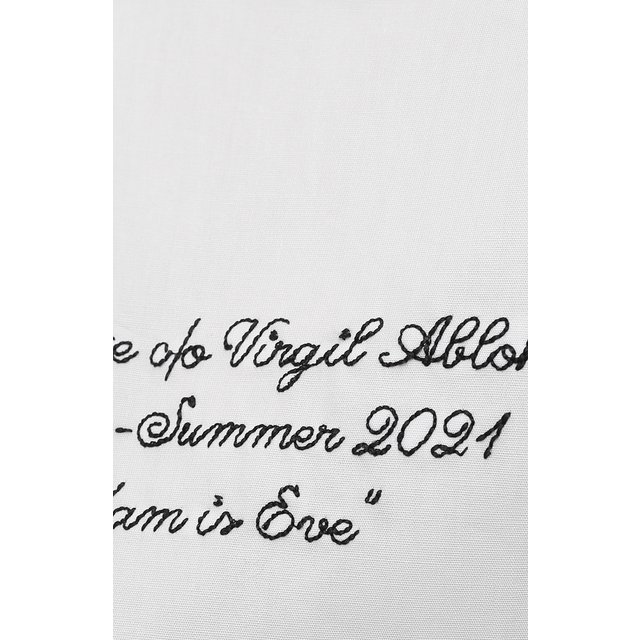 c/o Virgil Abloh
-Summer 2021
is Eve"